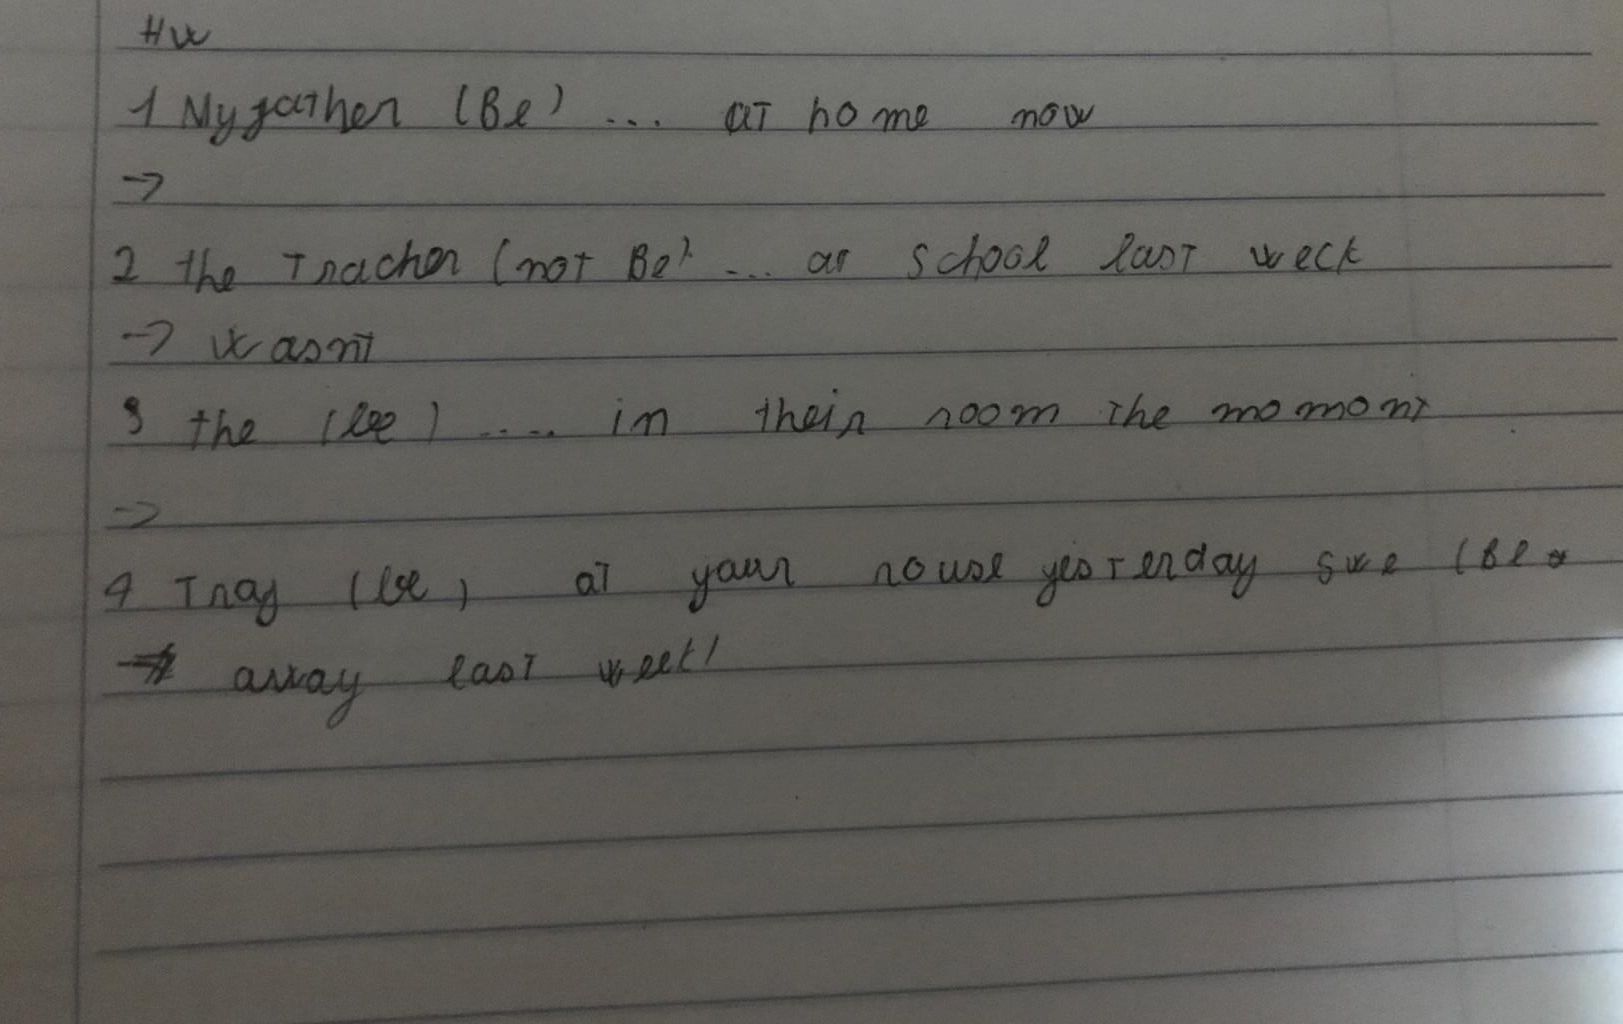 HW
1 My father (Be) ... at home now
→
2 the Teacher (not Be) ... at school last week
→ wasn't
3 the (be) .... in their room the moment
→
4 They (be) at your house yesterday (Be
→ away last week